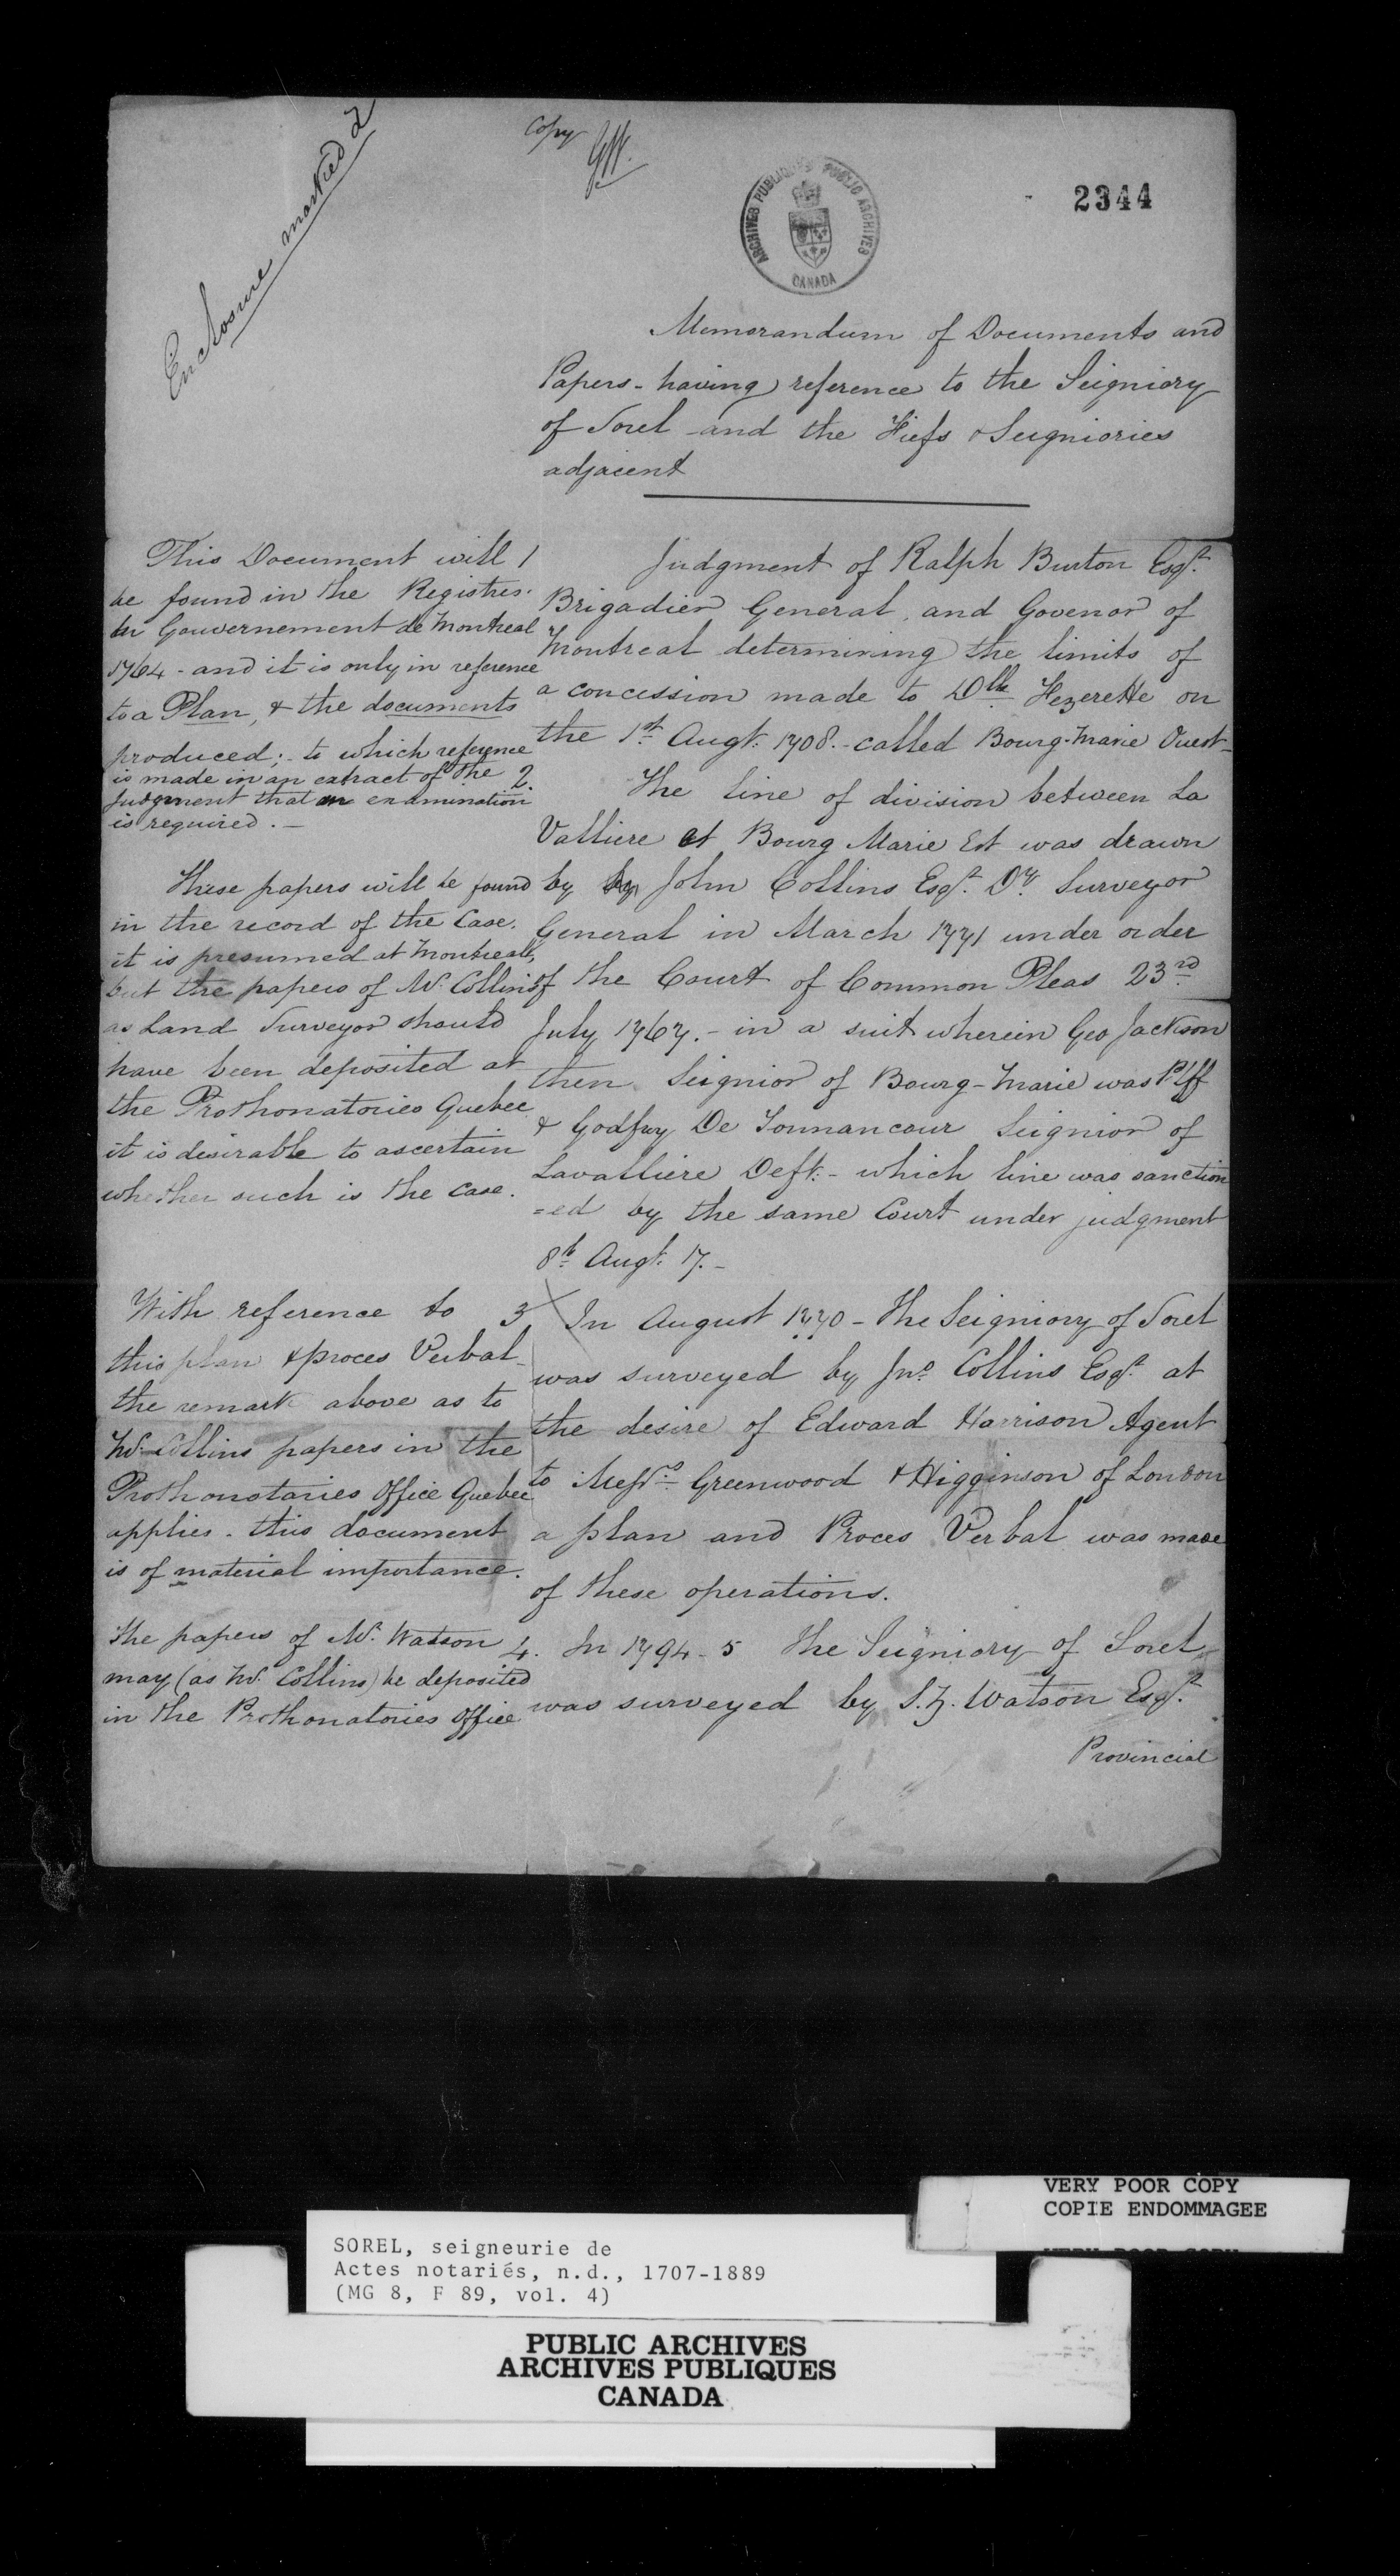 Enclosure marked 2
Copy
2344
ARCHIVES PUBLIQUES PUBLIC ARCHIVES
CANADA
Memorandum of Documents and
Papers - having reference to the Seigniory
of Sorel - and the Fiefs & Seigniories
adjacent
This Document will
be found in the Registres.
du Gouvernement de Montreal
1764 - and it is only in reference
to a Plan, & the documents
produced; - to which reference
is made in an extract of the
Judgment that an examination
is required. -
These papers will be found
in the record of the Case.
it is presumed at Montreal,
but the papers of Mr. Collins
as Land Surveyor should
have been deposited at
the Prothonatories Quebec
it is desirable to ascertain
whether such is the case.
With reference to
this plan & proces Verbal -
the remark above as to
Mr. Collins papers in the
Prothonotaries Office Quebec
applies - this document
is of material importance.
The papers of Mr. Watson
may (as Mr. Collins) be deposited
in the Prothonatories Office
1 Judgment of Ralph Burton Esqr.
Brigadier General, and Govenor of
Montreal determining the limits of
a concession made to Dlle Hezerette on
the 1st Augt: 1708. - called Bourg-Marie Ouest -
2. The line of division between La
Valliere et Bourg Marie Est was drawn
by John Collins Esqr. Dy. Surveyor
General in March 1771 under order
of the Court of Common Pleas 23rd
July 1767. - in a suit wherein Geo Jackson
then Seignior of Bourg-Marie was Plff
& Godfroy De Tonnancour Seignior of
Lavalliere Deft: - which line was sanction
=ed by the same Court under judgment
8th Augt: 17. -
3 In August 1770 - The Seigniory of Sorel
was surveyed by Jno. Collins Esqr. at
the desire of Edward Harrison Agent
to Messrs. Greenwood & Higginson of London
a plan and Proces Verbal was made
of these operations.
4. In 1794-5 The Seigniory of Sorel
was surveyed by S. Z. Watson Esqr.
Provincial
VERY POOR COPY
COPIE ENDOMMAGEE
VERY POOR COPY
SOREL, seigneurie de
Actes notariés, n.d., 1707-1889
(MG 8, F 89, vol. 4)
PUBLIC ARCHIVES
ARCHIVES PUBLIQUES
CANADA